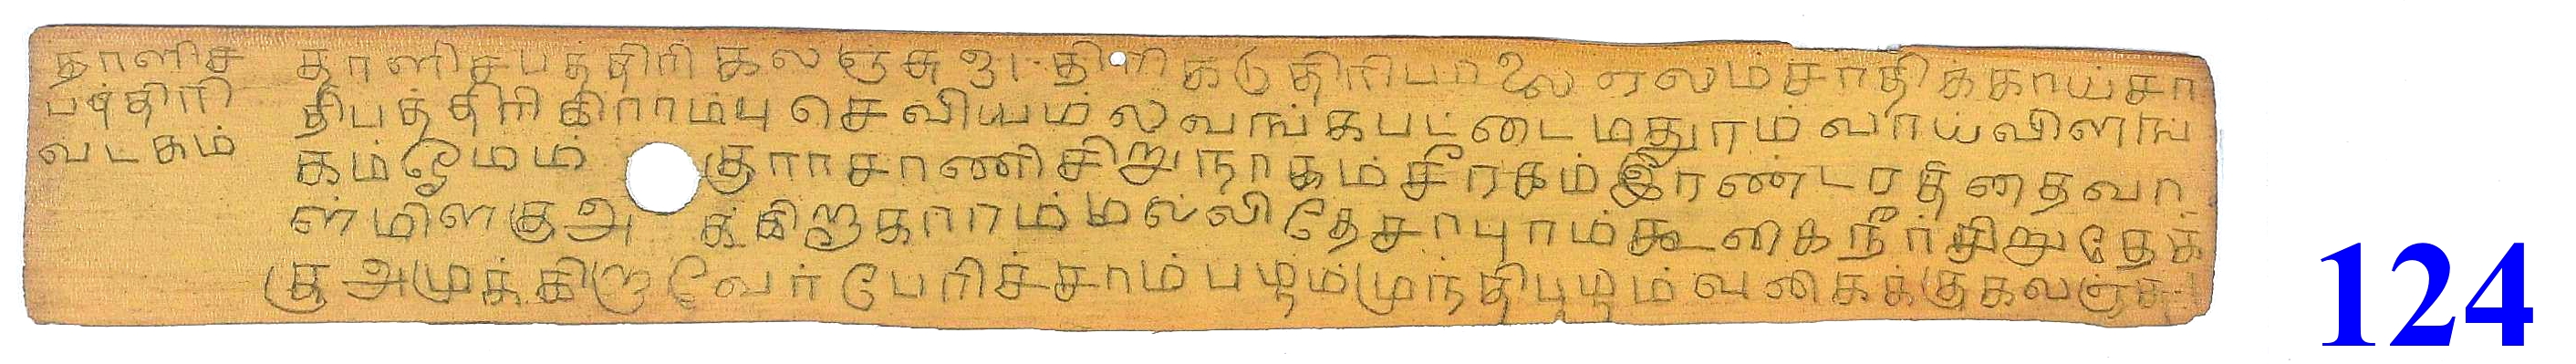 தாளிச தாளிசபத்திரி கலஞ்சு திரிகடு திரிபலை ஏலம் சாதிக்காய் சா
பத்திரி திபத்திரி கிராம்பு செவியம் லவங்கபட்டை மதுரம் வாய்விளங்
வடகம் கம் ஓமம் குராசாணி சிறுநாகம் சீரகம் இரண்டரத்தைவா
ள்மிளகு அ க்கிறகாரம் மல்லி தேசாபுரம் கூகைநீர் சிறுதேக்
கு அமுக்கிறா வேர் பேரிச்சாம் பழம் முந்திபழம் வகைக்கு கலஞ்சு
124